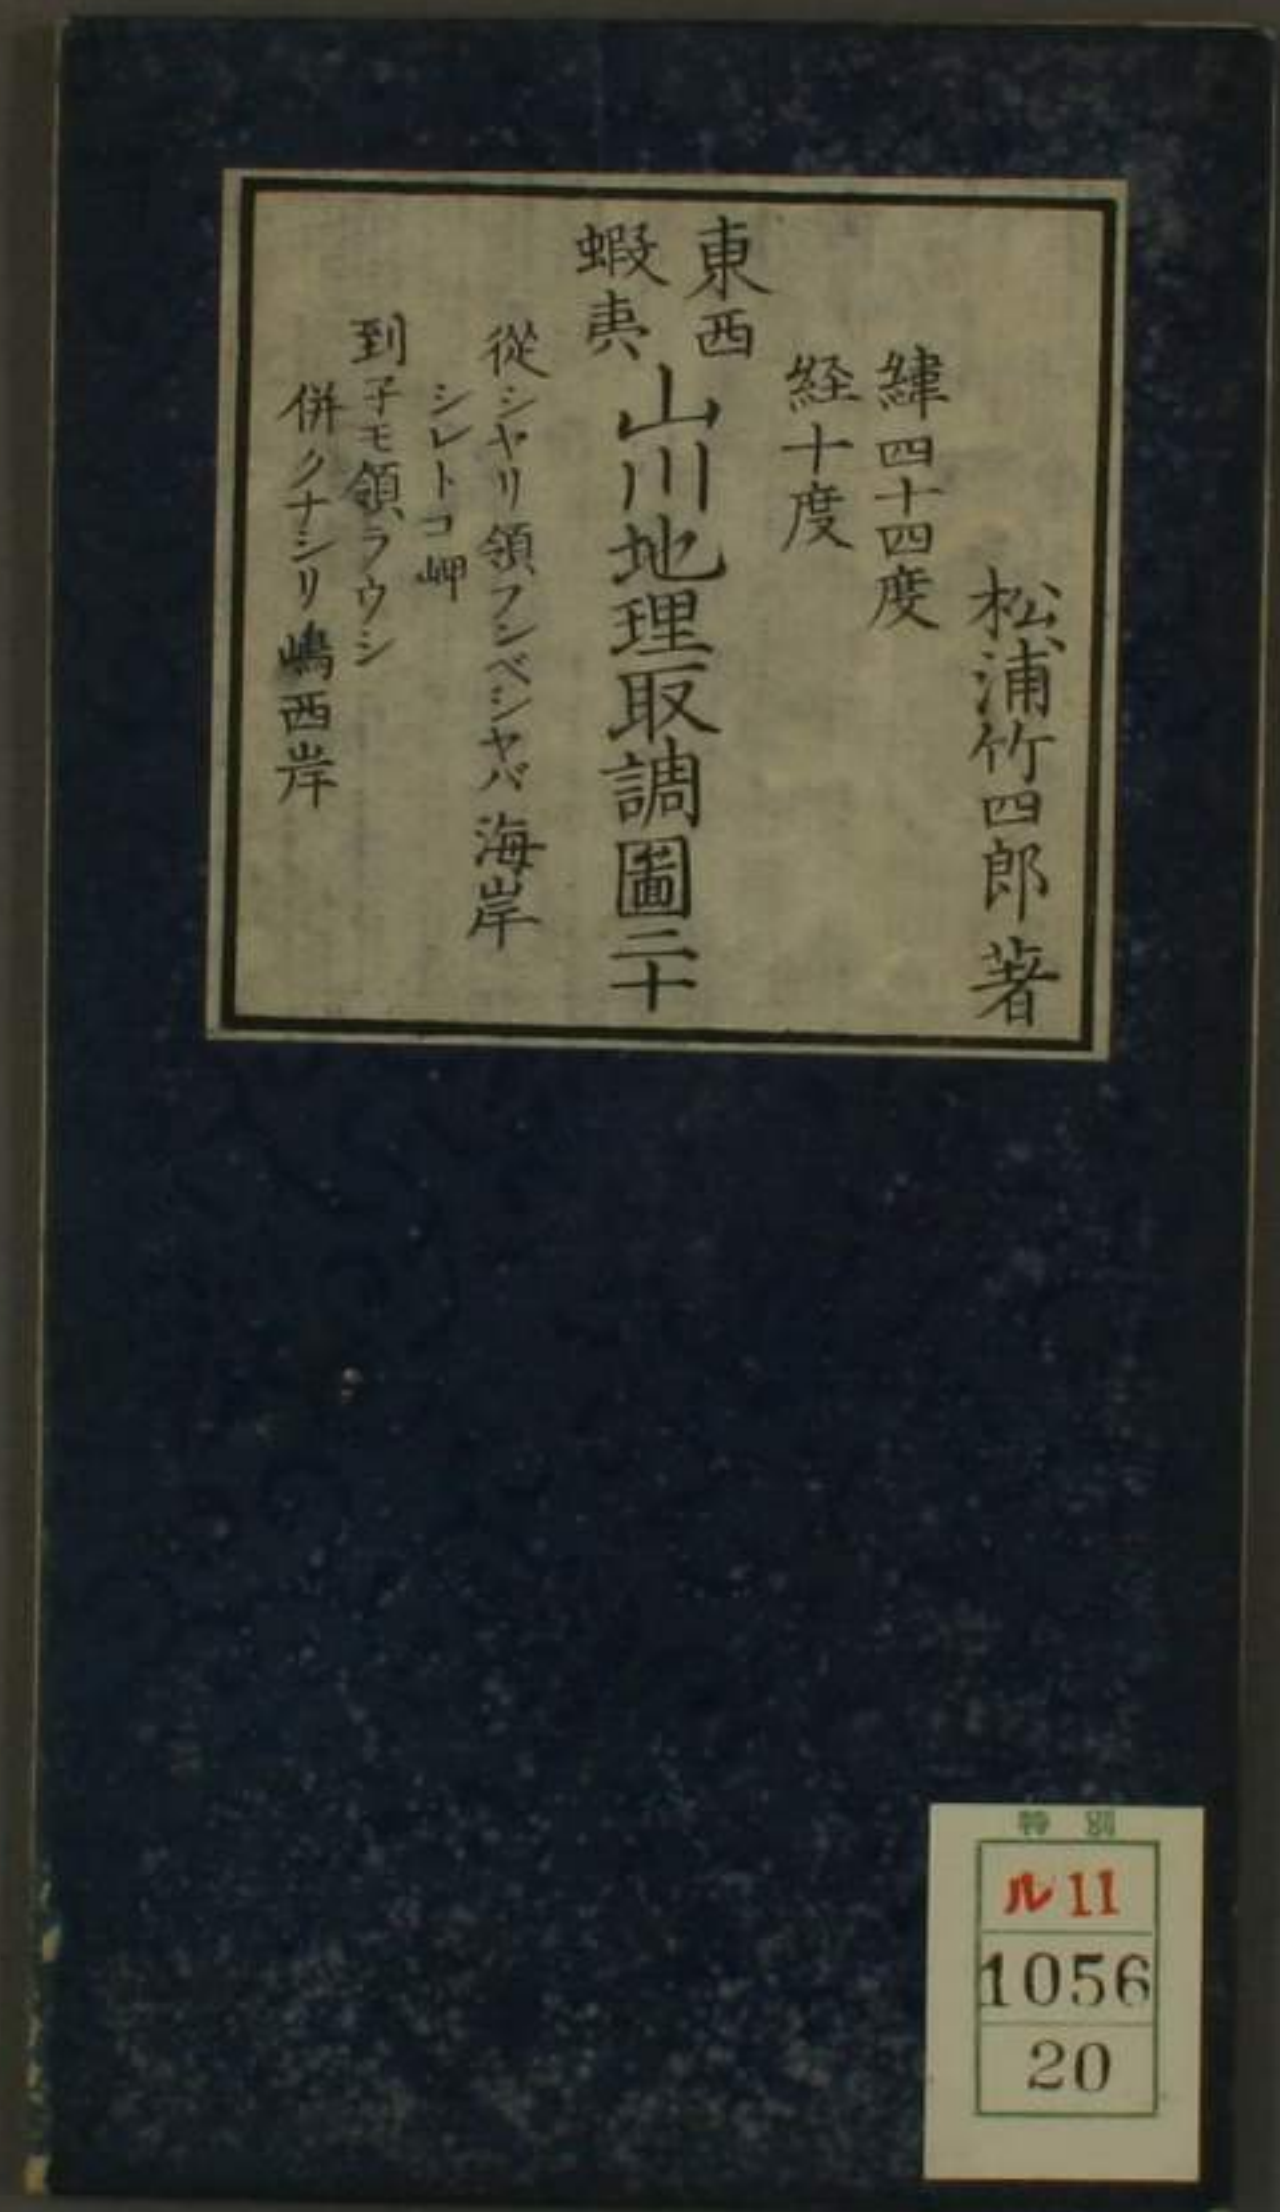 松浦竹四郎著
緯四十四度
経十度
東西
蝦夷
山川地理取調圖二十
從シヤリ領フンベシヤバ海岸
シレトコ岬
到子モ領ラウシ
併クナシリ嶋西岸
特別
ル11
1056
20